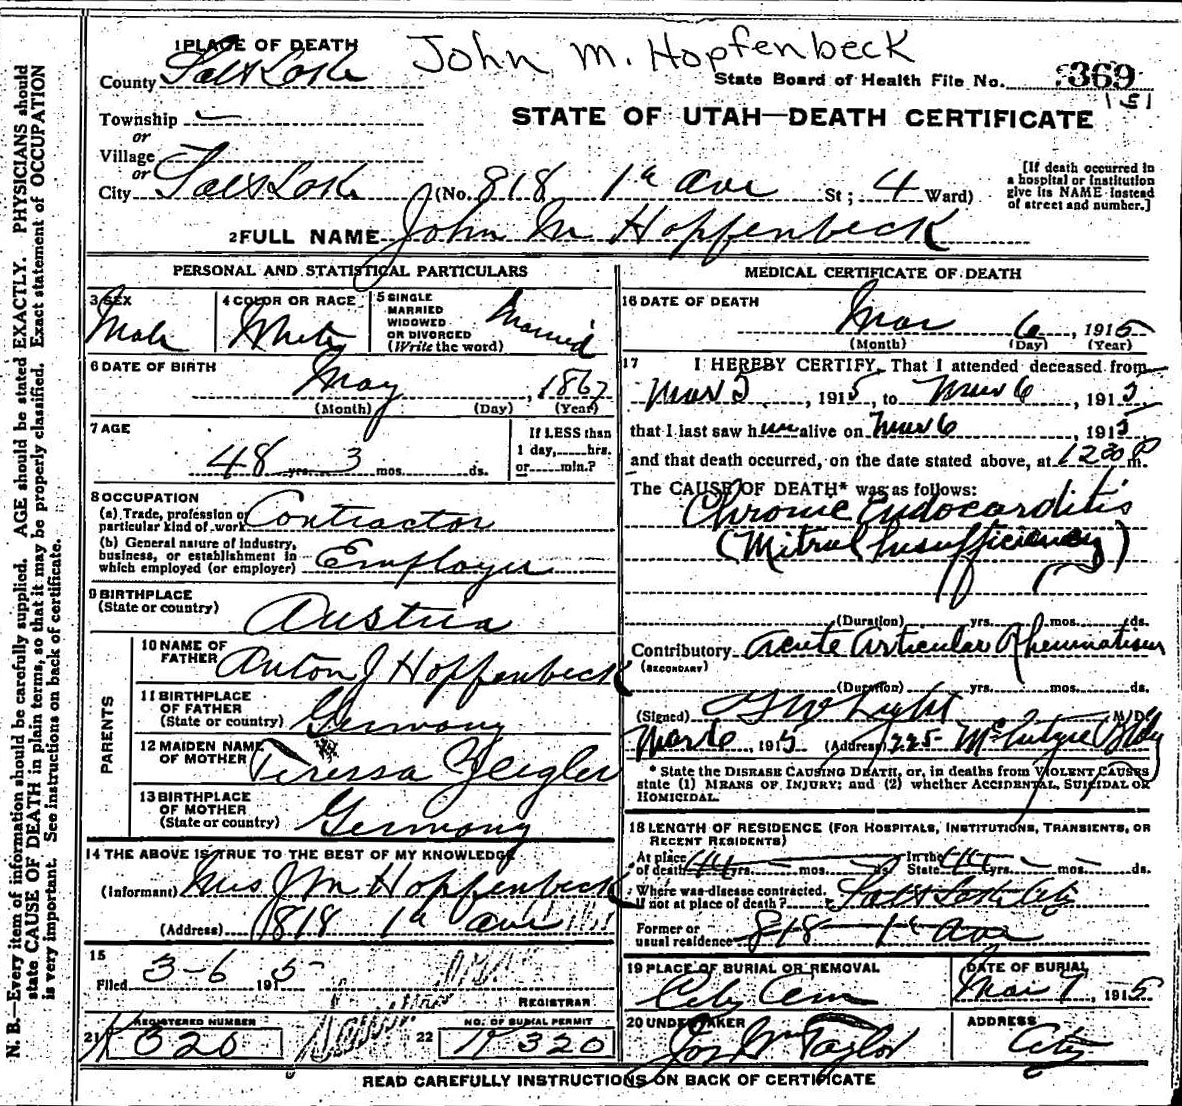 John M. Hopfenbeck
1 PLACE OF DEATH
County Salt Lake
State Board of Health File No. 369
151
STATE OF UTAH—DEATH CERTIFICATE
Township
or
Village
or
City Salt Lake (No. 818 1st Ave St; 4 Ward)
[If death occurred in
a hospital or institution
give its NAME instead
of street and number.]
2 FULL NAME John M Hopfenbeck
PERSONAL AND STATISTICAL PARTICULARS
3 SEX
Male
4 COLOR OR RACE
White
5 SINGLE
MARRIED
WIDOWED
OR DIVORCED
(Write the word)
Married
6 DATE OF BIRTH
May , 1867
(Month) (Day) (Year)
7 AGE
48 yrs. 3 mos. ds.
If LESS than
1 day, hrs.
or min.?
8 OCCUPATION
(a) Trade, profession or
particular kind of work Contractor
(b) General nature of industry,
business, or establishment in
which employed (or employer) Employer
9 BIRTHPLACE
(State or country) Austria
PARENTS
10 NAME OF
FATHER Anton J Hopfenbeck
11 BIRTHPLACE
OF FATHER
(State or country) Germany
12 MAIDEN NAME
OF MOTHER Teressa Zeigler
13 BIRTHPLACE
OF MOTHER
(State or country) Germany
14 THE ABOVE IS TRUE TO THE BEST OF MY KNOWLEDGE
(Informant) Mrs J M Hopfenbeck
(Address) 818 1st ave
15
Filed 3-6 1915
REGISTRAR
21 REGISTERED NUMBER
K320
22 NO. OF BURIAL PERMIT
K320
MEDICAL CERTIFICATE OF DEATH
16 DATE OF DEATH
Mar 6 , 1915
(Month) (Day) (Year)
17 I HEREBY CERTIFY, That I attended deceased from
Mar 5 , 1915, to Mar 6 , 1915
that I last saw him alive on Mar 6 , 1915
and that death occurred, on the date stated above, at 1230 P m.
The CAUSE OF DEATH* was as follows:
Chronic Endocarditis
(Mitral Insufficiency)
(Duration) yrs. mos. ds.
Contributory Acute Articular Rheumatism
(SECONDARY)
(Duration) yrs. mos. ds.
(Signed) M. D.
Mar 6, 1915 (Address) 225 McIntyre Bldg
* State the DISEASE CAUSING DEATH, or, in deaths from VIOLENT CAUSES
state (1) MEANS OF INJURY; and (2) whether ACCIDENTAL, SUICIDAL OR
HOMICIDAL.
18 LENGTH OF RESIDENCE (FOR HOSPITALS, INSTITUTIONS, TRANSIENTS, OR
RECENT RESIDENTS)
At place
of death 44 yrs. mos. ds. In the
State 44 yrs. mos. ds.
Where was disease contracted.
If not at place of death? Salt Lake City
Former or
usual residence 818 1st Ave
19 PLACE OF BURIAL OR REMOVAL
City Cem
DATE OF BURIAL
Mar 7 , 1915
20 UNDERTAKER
Jos Wm Taylor
ADDRESS
City
READ CAREFULLY INSTRUCTIONS ON BACK OF CERTIFICATE
N. B.—Every item of information should be carefully supplied. AGE should be stated EXACTLY. PHYSICIANS should
state CAUSE OF DEATH in plain terms, so that it may be properly classified. Exact statement of OCCUPATION
is very important. See instructions on back of certificate.